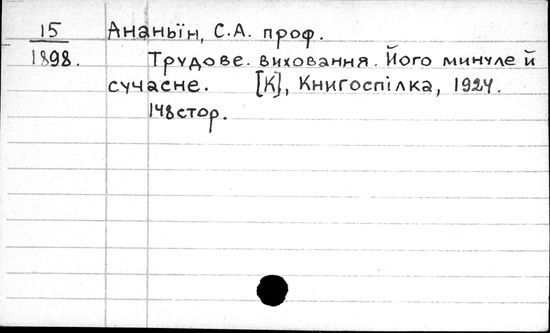 15
1898.
Ананьїн, С.А. проф.
Трудове. виховання. Його минуле й
сучасне. [К], Книгоспілка, 1924.
148 стор.